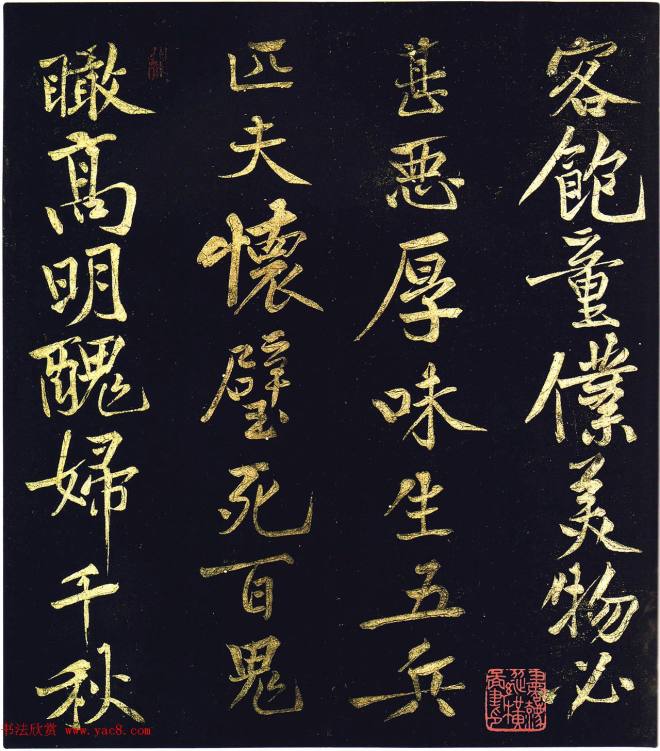 客飽童僕美物必
甚惡厚味生五兵
匹夫懷璧死百鬼
瞰高明醜婦千秋
书法欣赏 www.yac8.com